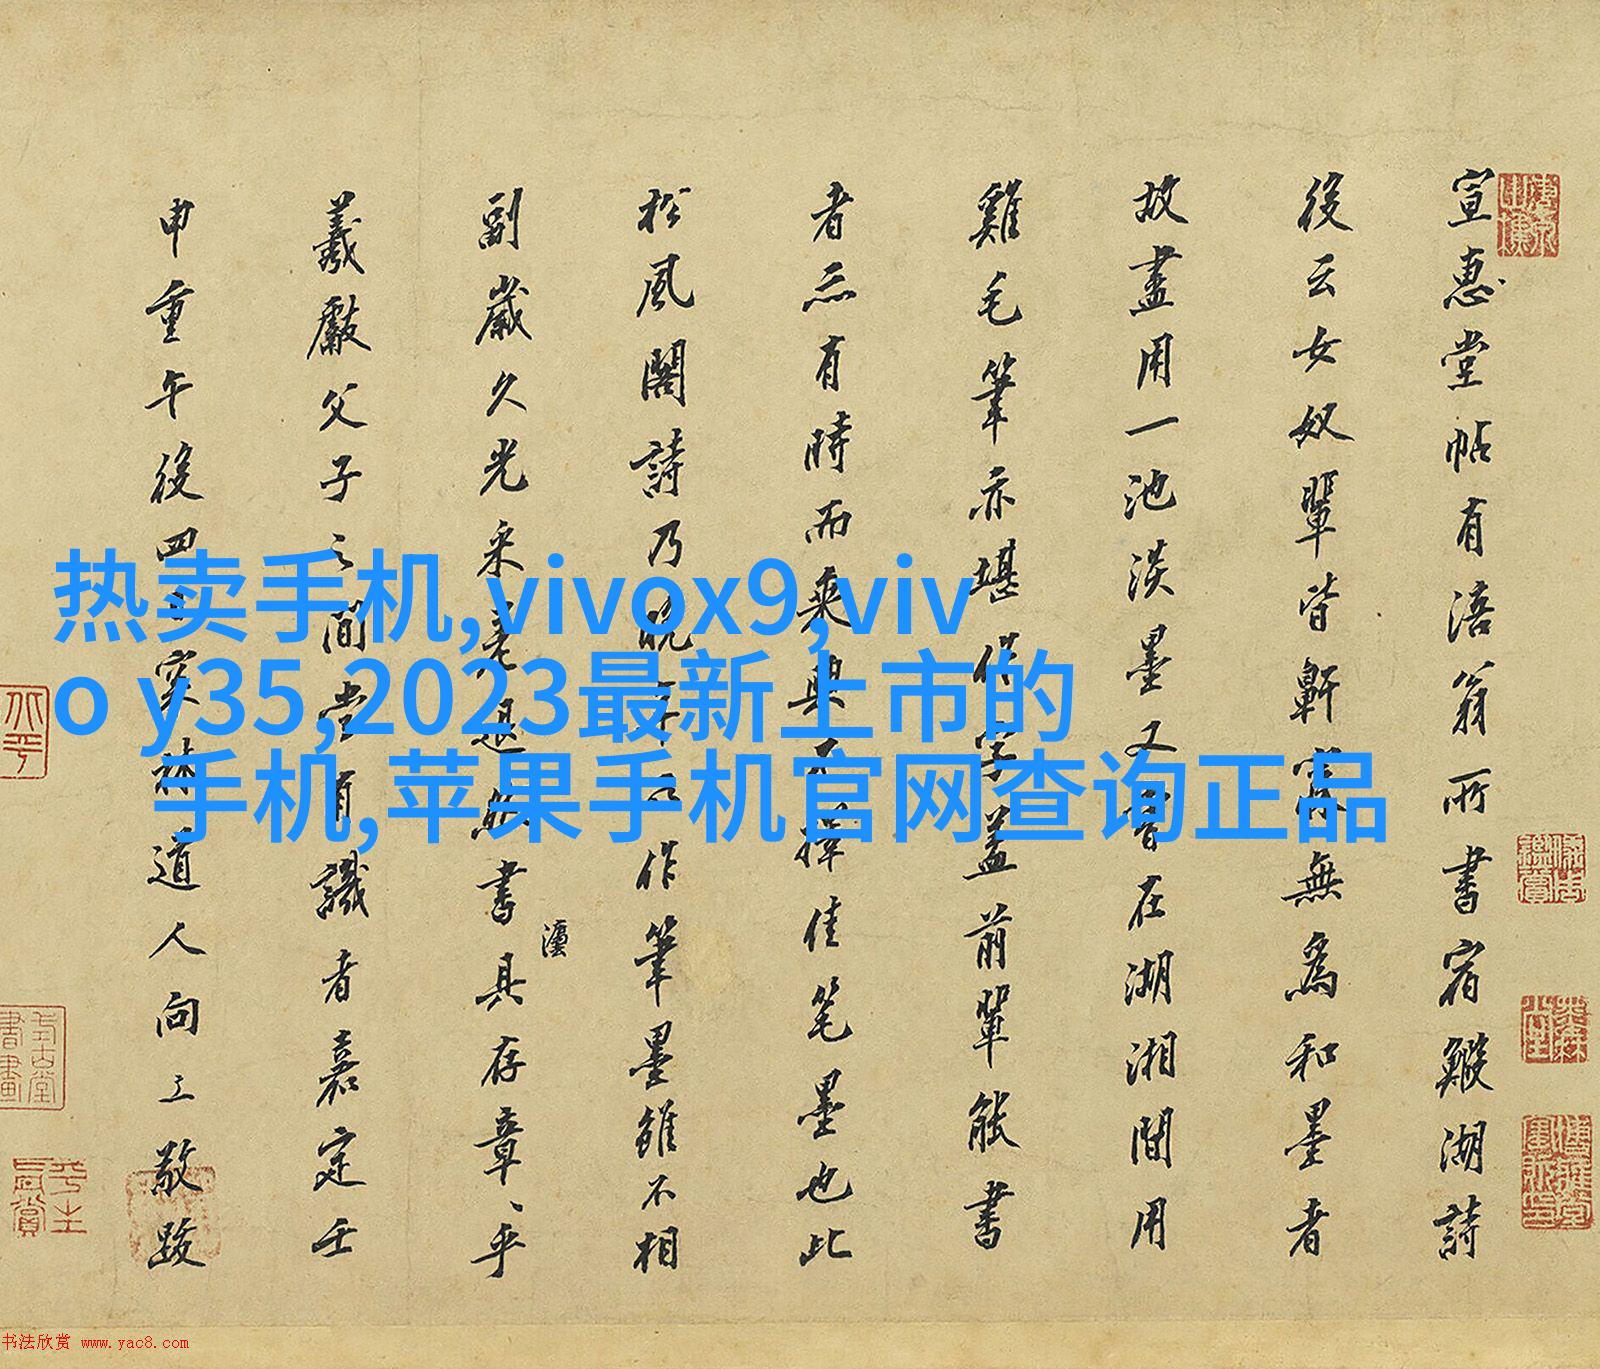 宣惠堂帖有涪翁所書宿鰕湖詩
後云女奴輩皆鼾寢無為和墨者
故盡用一池淡墨又嘗在湖湘間用
雞毛筆亦堪作字蓋前輩能書
者亦有時而乘興不擇佳笔墨也此
松風閣詩乃晚年所作筆墨雖不相
副歲久光采差退然書灋具存章、乎
羲獻父子之間當有識者嘉定壬
申重午後四林道人向敬跋
热卖手机,vivox9,viv
o y35,2023最新上市的
手机,苹果手机官网查询正品
书法欣赏 www.yac8.com